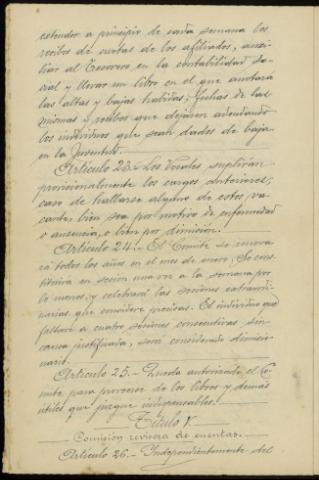 extender a principio de cada semana los
recibos de cuotas de los afiliados, auxi-
liar al Tesorero en la contabilidad so-
cial y llevar un libro en el que anotará
las altas y bajas habidas, fechas de las
mismas y recibos que dejaren adeudando
los individuos que sean dados de baja
en la Juventud.
Artículo 23.- Los Vocales suplirán
provisionalmente los cargos anteriores,
caso de hallarse alguno de estos, va-
cante bien sea por motivo de enfermedad
o ausencia, o bien por dimisión.
Artículo 24.- El Comité se renova-
rá todos los años en el mes de enero. Se cons-
tituirá en sesión una vez a la semana por
lo menos, y celebrará las sesiones extraordi-
narias que considere precisas. El individuo que
faltare a cuatro sesiones consecutivas sin
causa justificada, será considerado dimisio-
nario.
Artículo 25.- Queda autorizado el Co-
mité para proveerse de los libros y demás
útiles que juzgue indispensables.
Título V.
Comisión revisora de cuentas.
Artículo 26.- Independientemente del